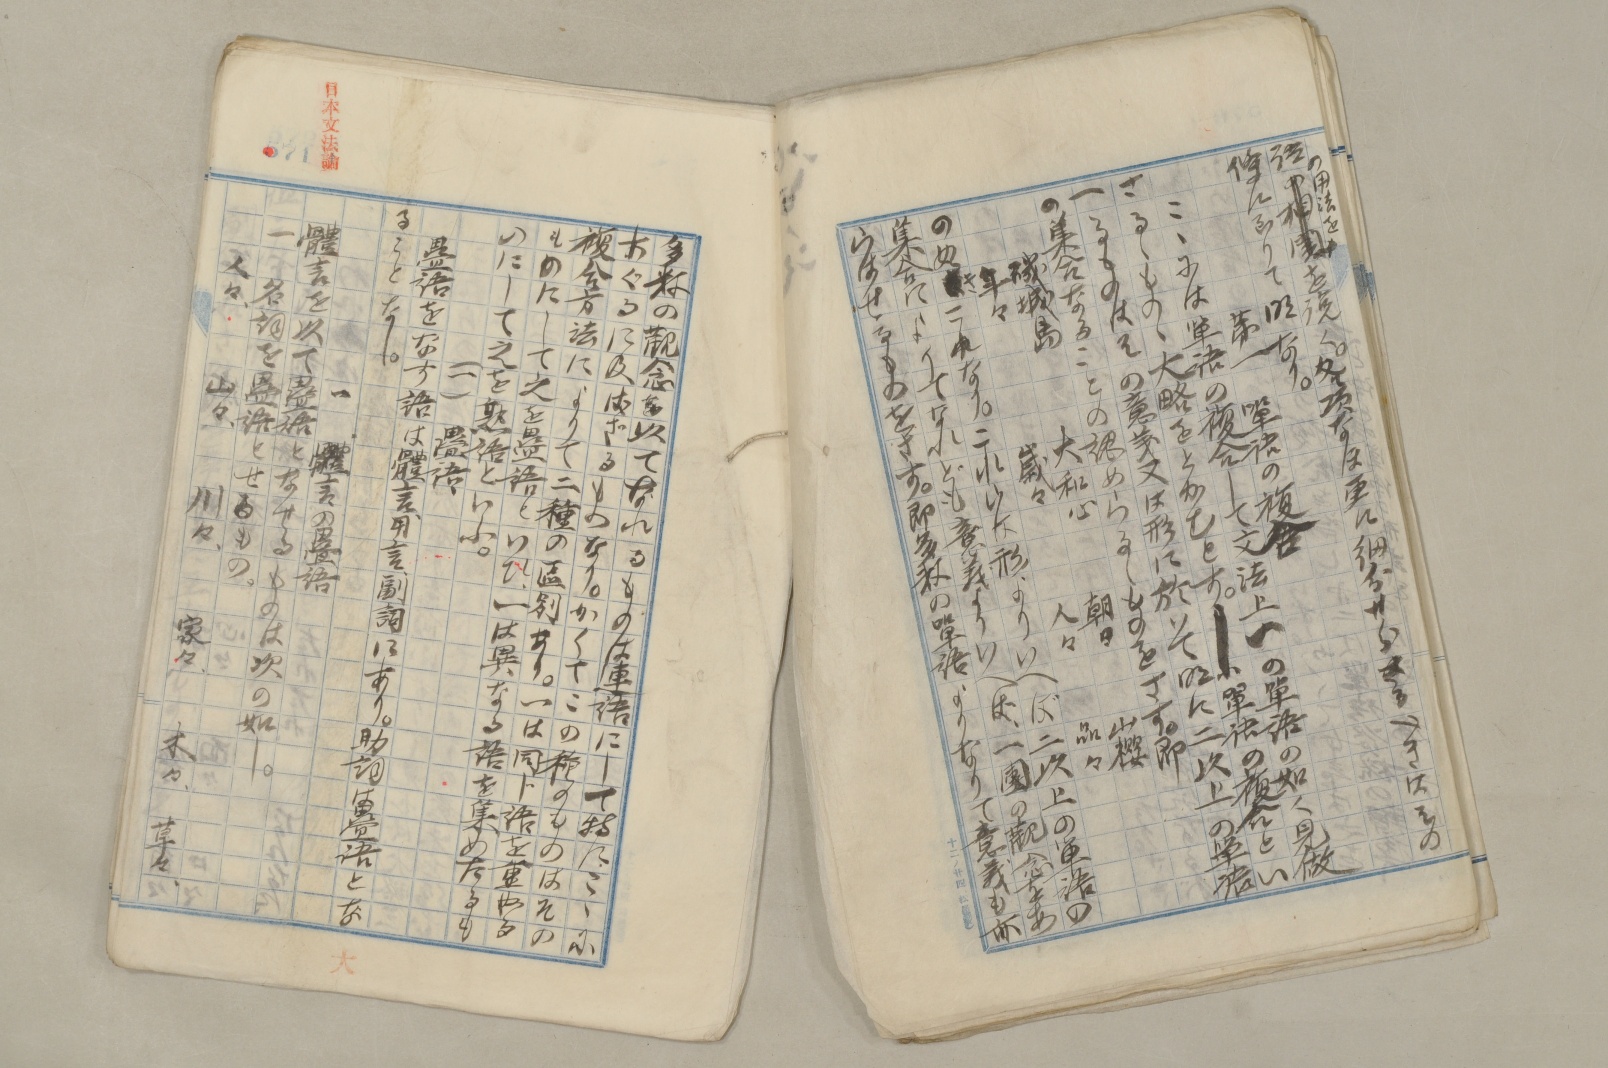 の用法を
語の相関を説く。各項なほ更に細分せらるべきはその
條に至りて明なり。
第一　單語の複合
ここには単語の複合して文法上一の單語の如く見做
さるゝもの、大略をとかむとす。單語の複合とい
へるものはその意義又は形に於いて明に二以上の單語
の集合なることの認めらるゝものをさす。即
磯城島　大和心　朝日　山櫻
年々　歳々　人々　品々
の如きこれなり。これらは形よりいへば二以上の單語の
集合によりてなれども意義よりいへば、一團の觀念をあ
らはせるものをさす。即多数の單語よりなりて意義も亦
多数の觀念を以てなれるものは連語にして特にここに
あぐるに及ばざるものなり。かくてこの種のものはその
複合方法によりて二種の区別あり。一は同じ語を重ぬる
ものにして之を疊語といひ、一は異なる語を集めたるも
のにして之を熟語といふ。
(一)　疊語
疊語をなす語は體言、用言、副詞にあり。助詞は疊語とな
ることなし。
一　體言の疊語
體言を以て疊語となせるものは次の如し。
一　名詞を疊語とせるもの。
人々、　山々、　川々、　家々、　木々、　草々、
日本文法論